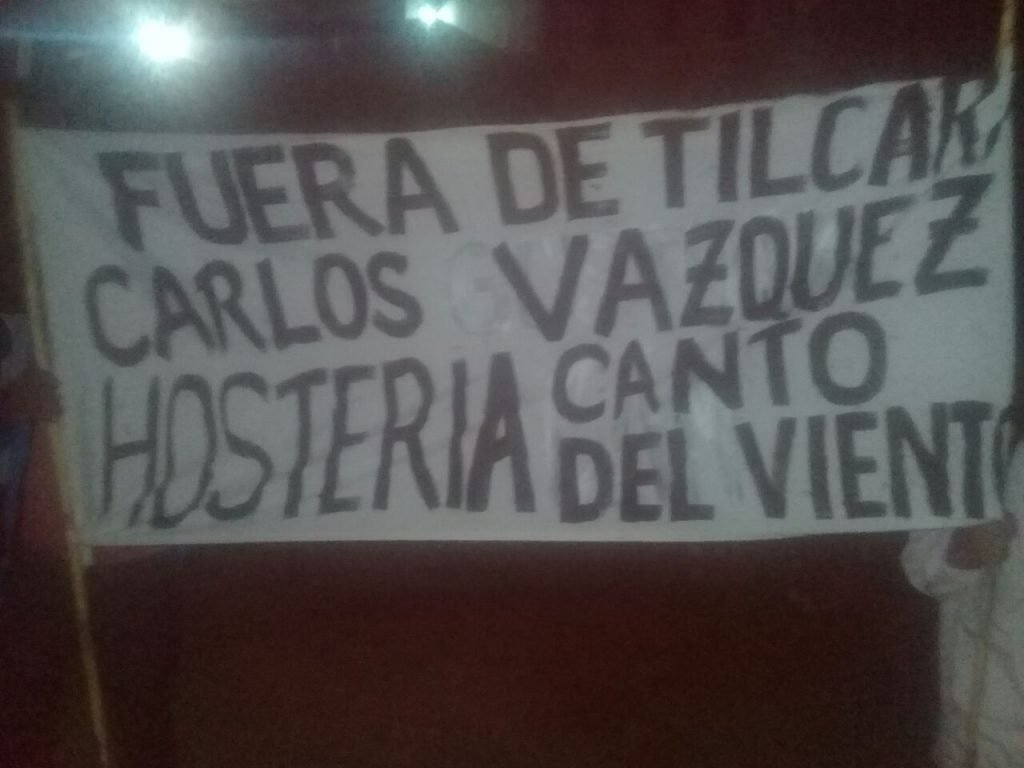 FUERA DE TILCARA
CARLOS VAZQUEZ
HOSTERIA CANTO
DEL VIENTO